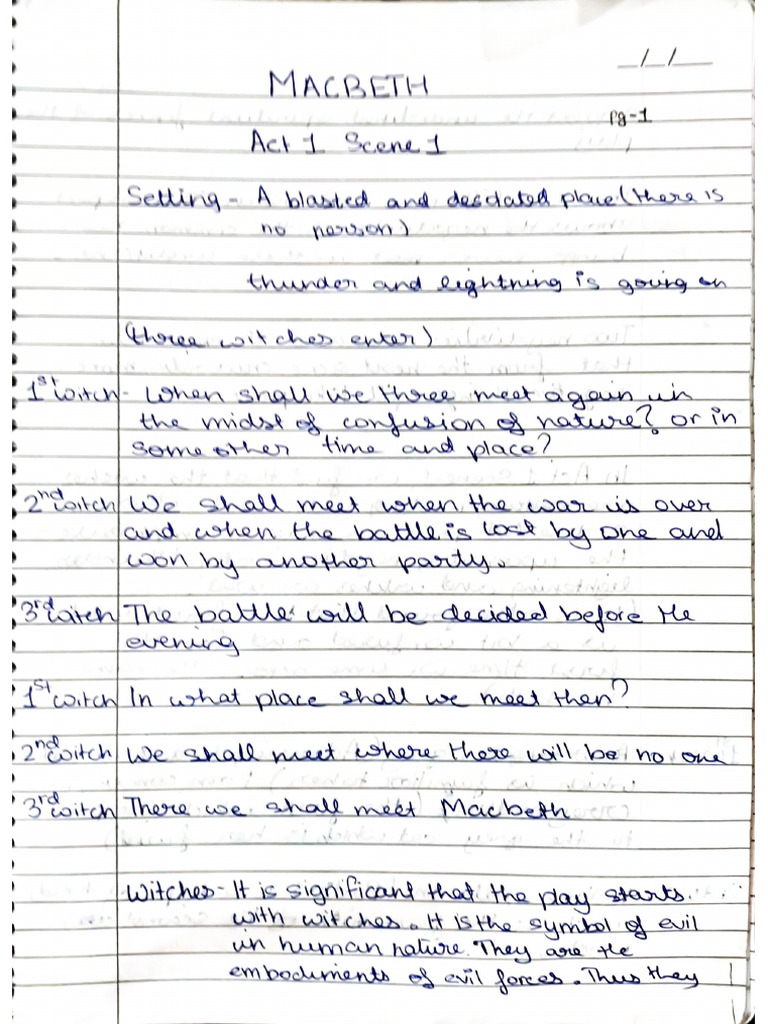 _/_/_
MACBETH
pg-1
Act 1 Scene 1
Setting - A blasted and desolated place (there is
no person)
thunder and lightning is going on
(three witches enter)
1st witch - When shall we three meet again in
the midst of confusion of nature? or in
some other time and place?
2nd witch We shall meet when the war is over
and when the battle is lost by one and
won by another party.
3rd witch The battle will be decided before the
evening
1st witch In what place shall we meet then?
2nd witch We shall meet where there will be no one
3rd witch There we shall meet Macbeth
Witches - It is significant that the play starts
with witches. It is the symbol of evil
in human nature. They are the
embodiments of evil forces. Thus they